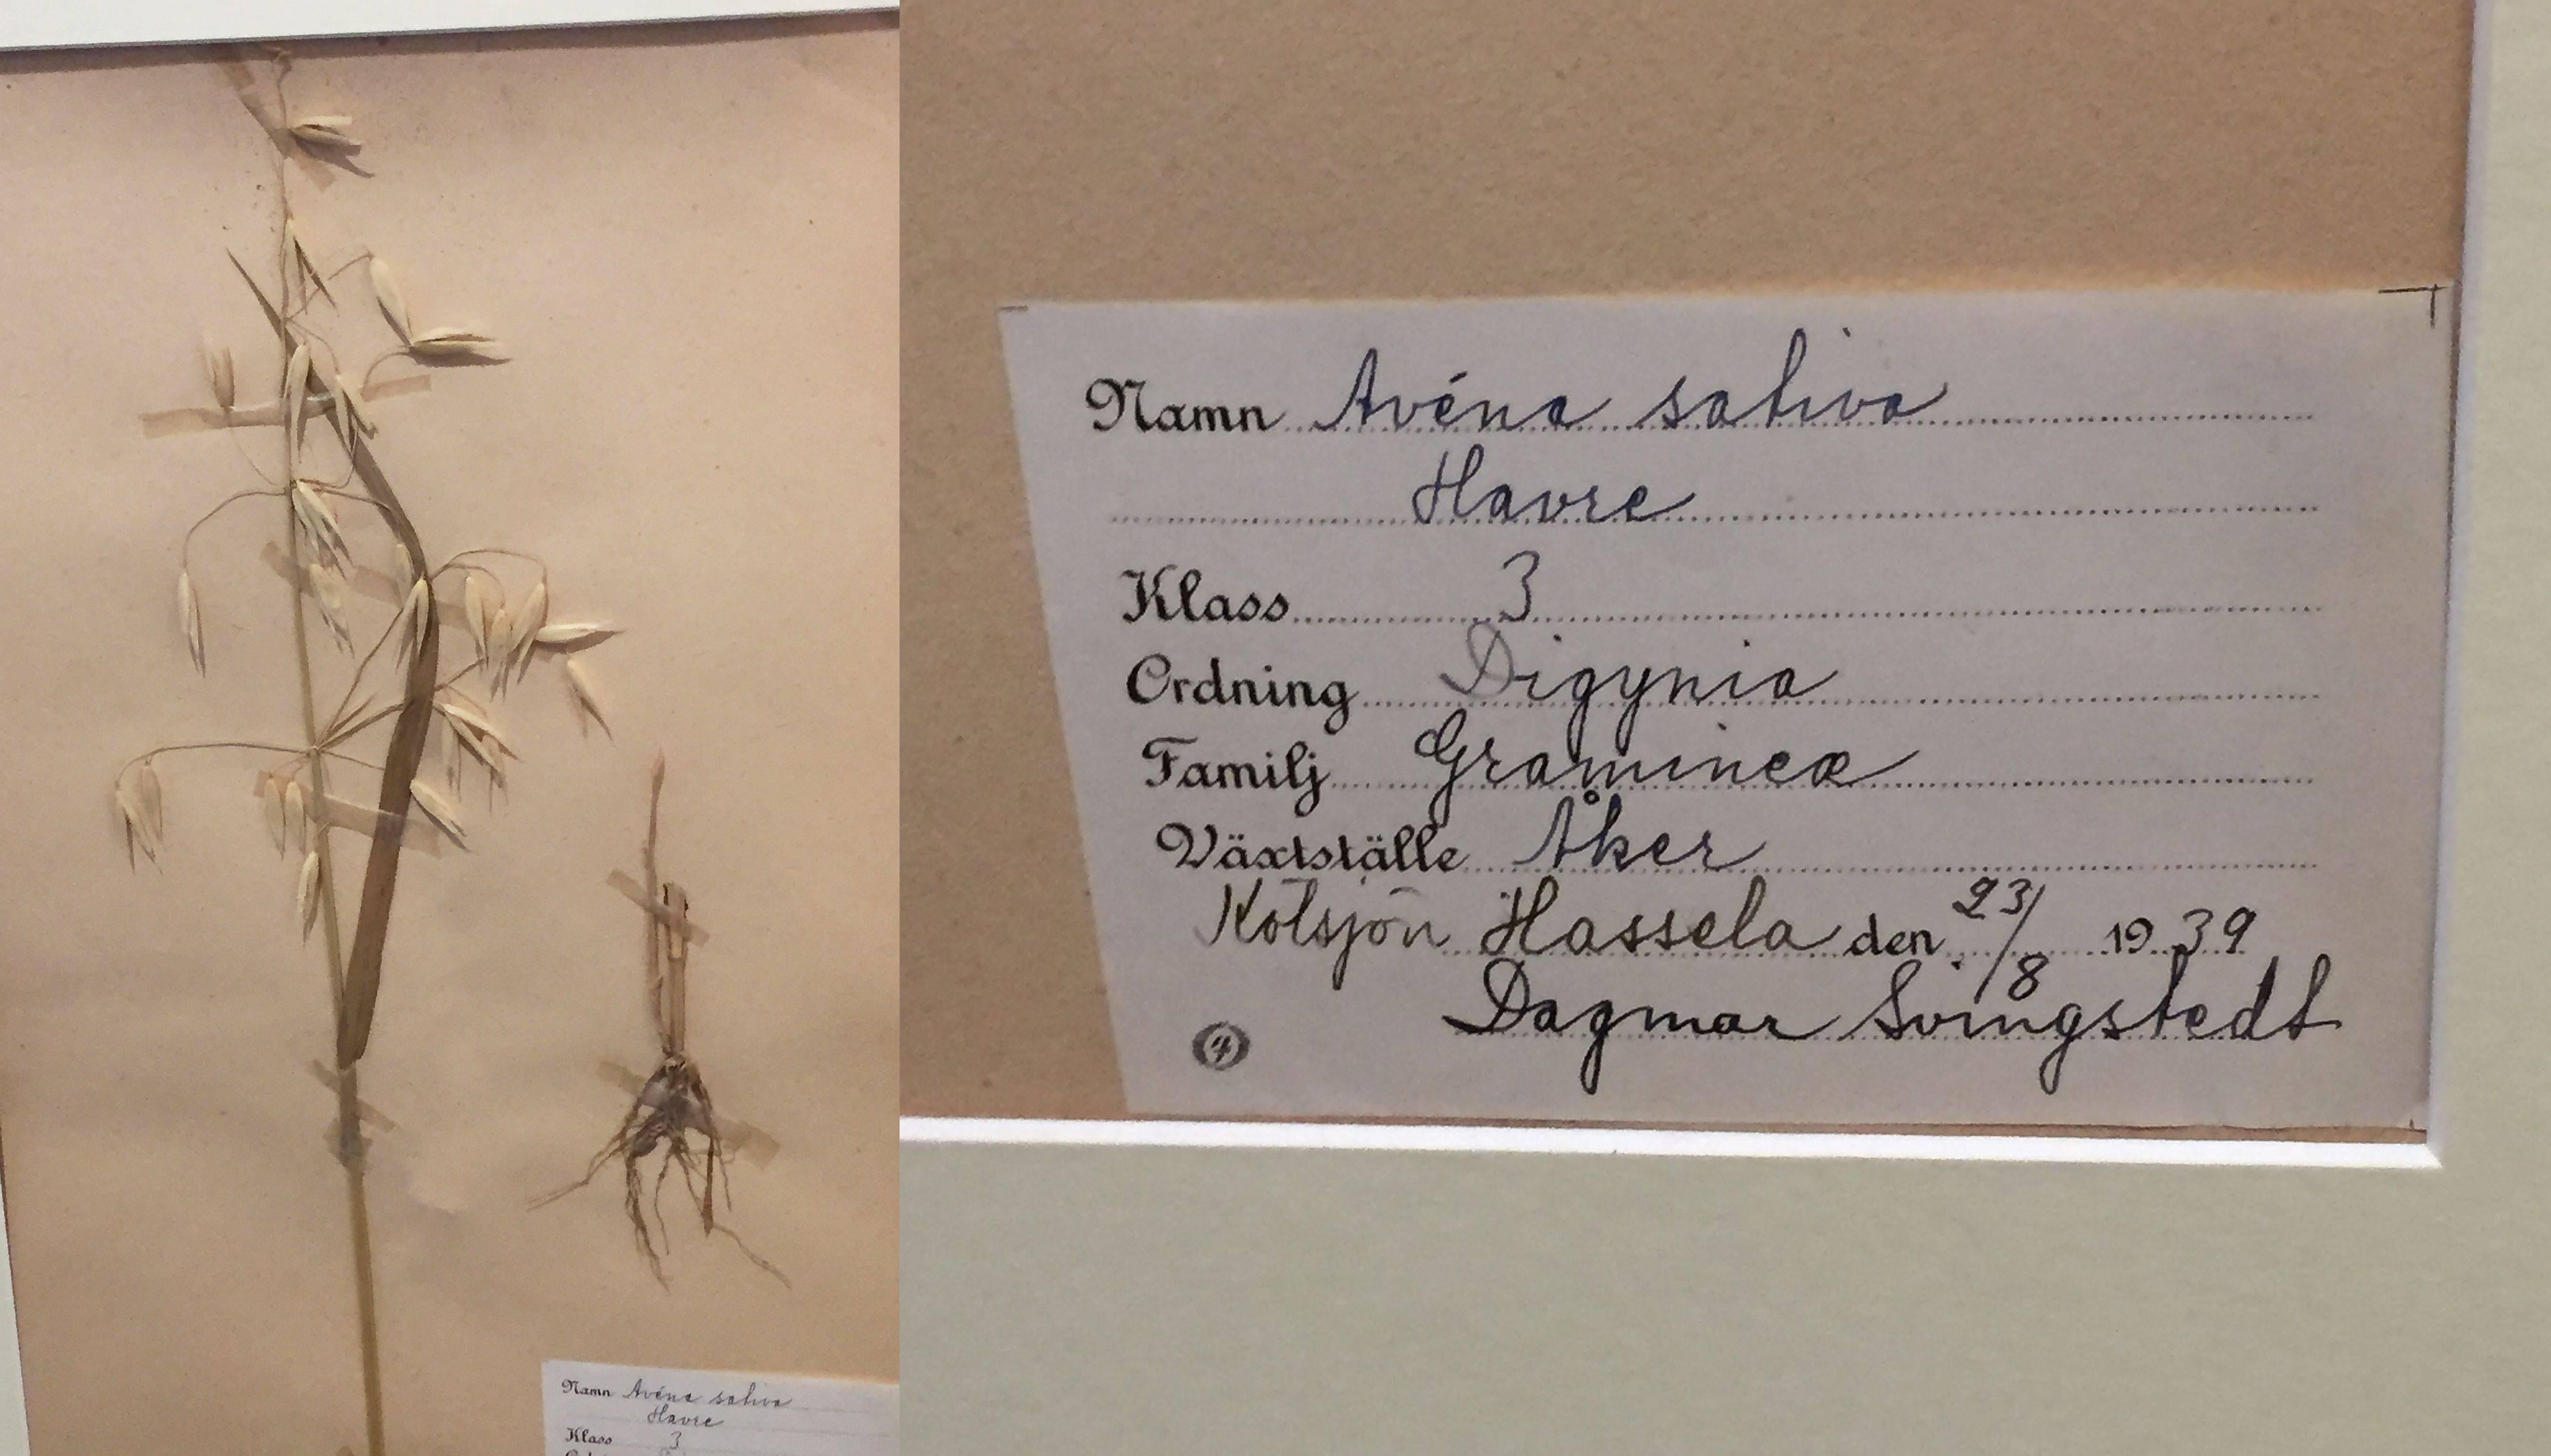 Namn Avéna sativa
Havre
Klass 3
Namn Avéna sativa
Havre
Klass 3
Ordning Digynia
Familj Gramineæ
Växtställe Åker
Kölsjön Hassela den 23/8 1939
Dagmar Svingstedt
4